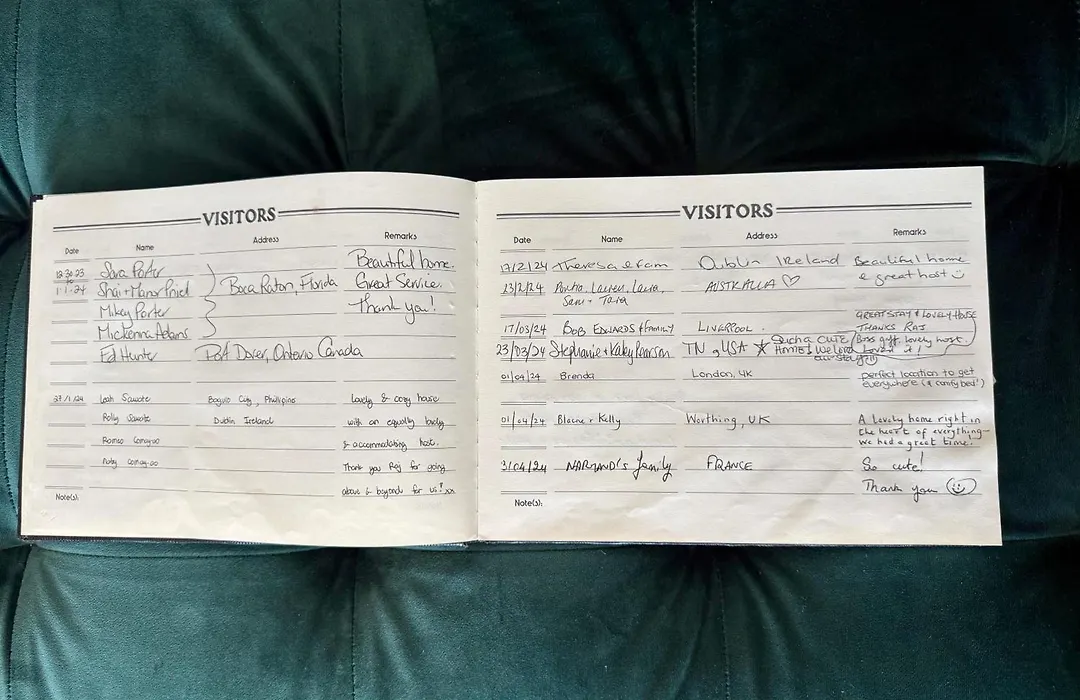 VISITORS
Date Name Address Remarks
12.30.23 Sara Porter Beautiful home.
to
1.1.24 Shai + Manor Boca Raton, Florida Great Service.
Mikey Porter Thank you!
Mickenna Adams
Ed Hunter Port Dover, Ontario Canada
Leah Sawate Baguio City, Philipins Lovely & cozy house
Rolly Sawate Dublin Ireland with an equally lovely
Romeo & accommodating host.
Ruby Thank you Raj for going
above & beyond for us! xx
Note(s):
VISITORS
Date Name Address Remarks
17/2/24 Theresa & fam Dublin Ireland Beautiful home
& great host
23/2/24 Portia, Lauren, Laura, AUSTRALIA
Sam + Tara
GREAT STAY & LOVELY HOUSE
17/03/24 BOB EDWARDS & FAMILY LIVERPOOL. THANKS RAJ
23/03/24 Stephanie + Kaley Pearson TN, USA Sucha cute home! We loved our stay!!! / Boss gaff, lovely host. Loved it!
01/04/24 Brenda London, UK perfect location to get
everywhere (& comfy bed!)
01/04/24 Blaine + Kelly Worthing, UK A lovely home right in
the heart of everything-
we had a great time.
3/04/24 NARMAND'S family FRANCE So cute!
Thank you
Note(s):